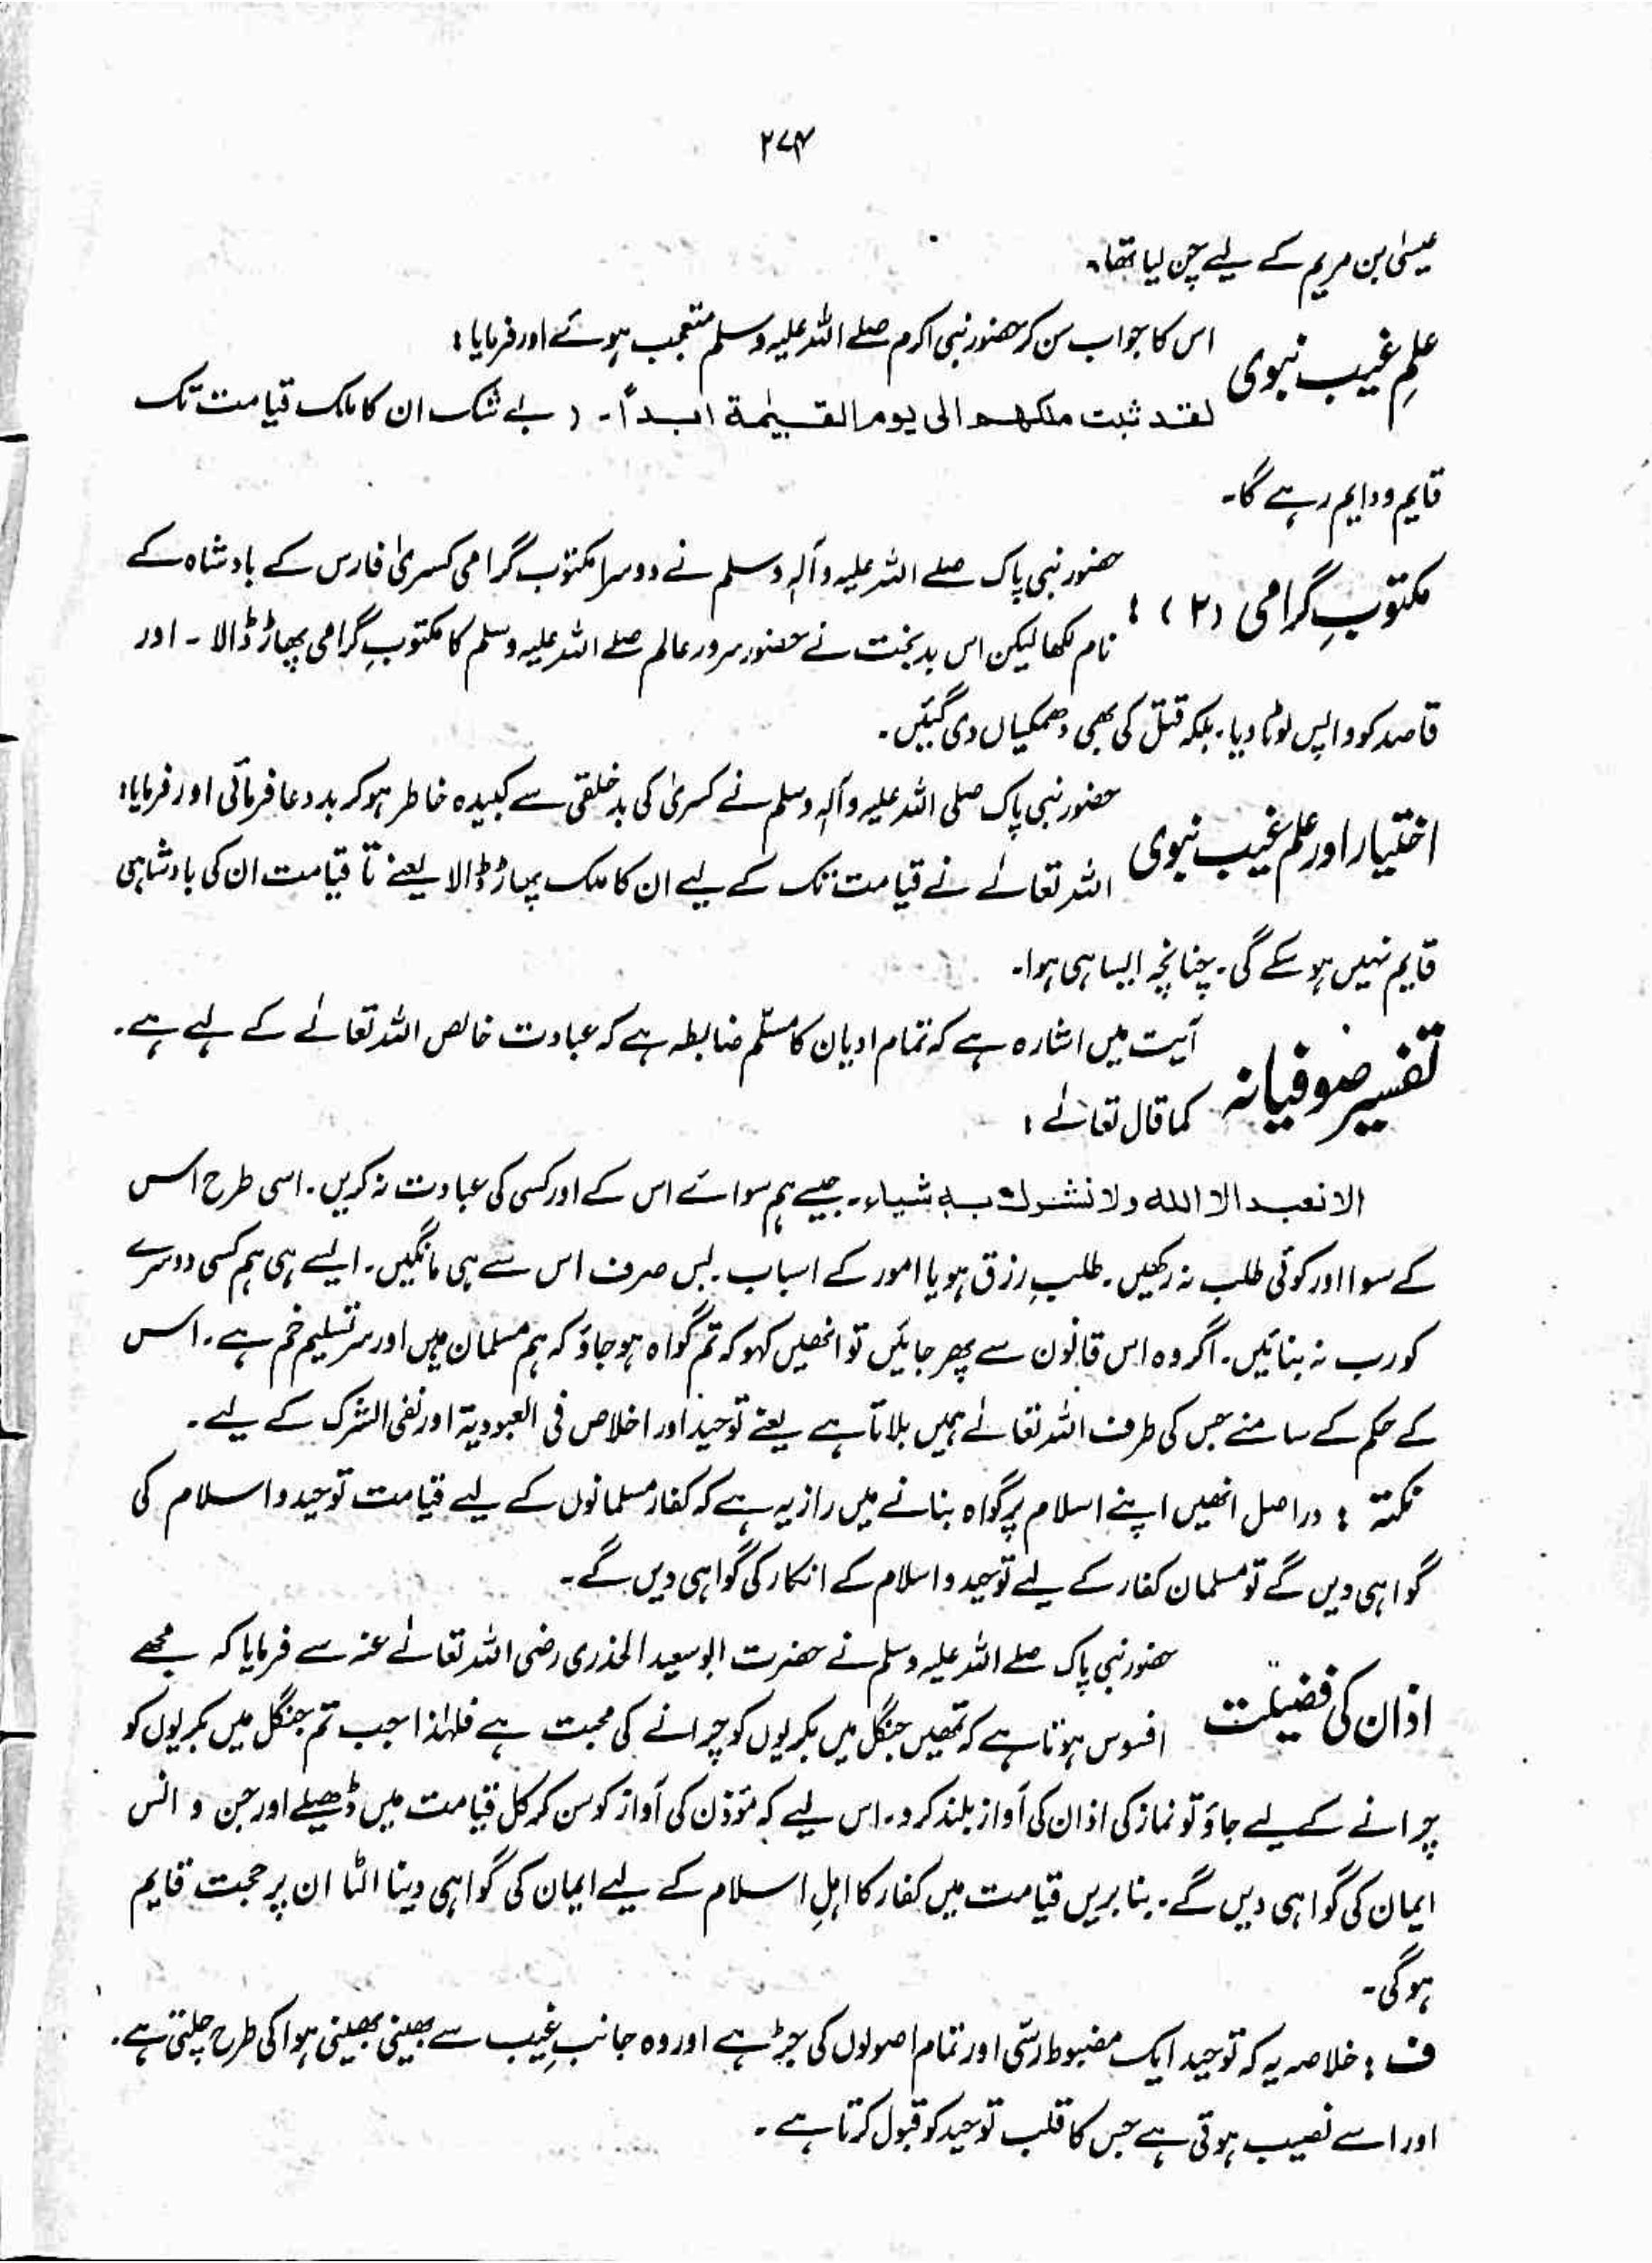 ۲۷۴
عیسیٰ بن مریم کے لیے چن لیا تھا۔
علمِ غیب نبوی
اس کا جواب سن کر حضور نبی اکرم صلے اللہ علیہ وسلم متعجب ہوئے اور فرمایا :
لقد ثبت ملکھم الی یوم القیٰمة ابداً۔ ( بے شک ان کا ملک قیامت تک
قایم و دایم رہے گا۔
مکتوبِ گرامی (۲) :
حضور نبی پاک صلے اللہ علیہ وآلہٖ وسلم نے دوسرا مکتوب گرامی کسریٰ فارس کے بادشاہ کے
نام لکھا لیکن اس بدبخت نے حضور سرور عالم صلے اللہ علیہ وسلم کا مکتوبِ گرامی پھاڑ ڈالا ۔ اور
قاصد کو واپس لوٹا دیا۔ بلکہ قتل کی بھی دھمکیاں دی گئیں۔
اختیار اور علم غیب نبوی
حضور نبی پاک صلی اللہ علیہ وآلہٖ وسلم نے کسریٰ کی بدخلقی سے کبیدہ خاطر ہو کر بددعا فرمائی اور فرمایا:
اللہ تعالےٰ نے قیامت تک کے لیے ان کا ملک پھاڑ ڈالا یعنے تا قیامت ان کی بادشاہی
قایم نہیں ہو سکے گی۔ چنانچہ ایسا ہی ہوا۔
تفسیر صوفیانہ
آیت میں اشارہ ہے کہ تمام ادیان کا مسلّم ضابطہ ہے کہ عبادت خالص اللہ تعالےٰ کے لیے ہے۔
کما قال تعالےٰ :
الا نعبد الا اللہ ولا نشرك بہٖ شیاء۔ جیسے ہم سوائے اس کے اور کسی کی عبادت نہ کریں۔ اسی طرح اس
کے سوا اور کوئی طلب نہ رکھیں۔ طلبِ رزق ہو یا امور کے اسباب۔ بس صرف اس سے ہی مانگیں۔ ایسے ہی ہم کسی دوسرے
کو رب نہ بنائیں۔ اگر وہ اس قانون سے پھر جائیں تو انھیں کہو کہ تم گواہ ہو جاؤ کہ ہم مسلمان ہیں اور سرِ تسلیم خم ہے۔ اس
کے حکم کے سامنے جس کی طرف اللہ تعالےٰ ہمیں بلاتا ہے یعنے توحید اور اخلاص فی العبودیة اور نفی الشرک کے لیے۔
نکتہ : دراصل انھیں اپنے اسلام پر گواہ بنانے میں راز یہ ہے کہ کفار مسلمانوں کے لیے قیامت توحید و اسلام کی
گواہی دیں گے تو مسلمان کفار کے لیے توحید و اسلام کے انکار کی گواہی دیں گے۔
اذان کی فضیلت
حضور نبی پاک صلے اللہ علیہ وسلم نے حضرت ابو سعید الخدری رضی اللہ تعالےٰ عنہ سے فرمایا کہ مجھے
افسوس ہوتا ہے کہ تمھیں جنگل میں بکریوں کو چرانے کی محبت ہے فلہٰذا جب تم جنگل میں بکریوں کو
چرانے کے لیے جاؤ تو نماز کی اذان کی آواز بلند کرو۔ اس لیے کہ مؤذن کی آواز کو سن کر کل قیامت میں ڈھیلے اور جن و انس
ایمان کی گواہی دیں گے۔ بنا بریں قیامت میں کفار کا اہلِ اسلام کے لیے ایمان کی گواہی دینا الٹا ان پر حجت قایم
ہو گی۔
ف : خلاصہ یہ کہ توحید ایک مضبوط رسّی اور تمام اصولوں کی جڑ ہے اور وہ جانبِ غیب سے بھینی بھینی ہوا کی طرح چلتی ہے۔
اور اسے نصیب ہوتی ہے جس کا قلب توحید کو قبول کرتا ہے ۔